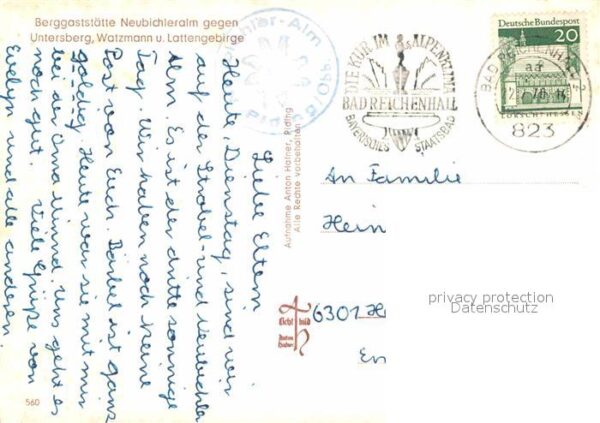 Berggaststätte Neubichleralm gegen
Untersberg, Watzmann u. Lattengebirge
Liebe Eltern
Heute, Dienstag, sind wir
auf der Strobel- und Neubichler
Alm. Es ist der dritte sonnige
Tag. Wir haben noch keine
Post von Euch. Bärbel ist ganz
goldig. Heute war sie mit mir
bei der Oma Urmd. Uns geht es
noch gut. Viele Grüße von
Evelyn und alle anderen.
560
Aufnahme Anton Hafner, Piding
Alle Rechte vorbehalten
Echt
bild
Anton
Hafner
ler-Alm
Piding/Obb.
DIE KUR IM ALPENKLIMA
BAD REICHENHALL
BAYERISCHES STAATSBAD
Deutsche Bundespost
20
LORSCH/HESSEN
BAD REICHENHALL 2
aa
823
An Familie
Hein
6301 He
En
privacy protection
Datenschutz